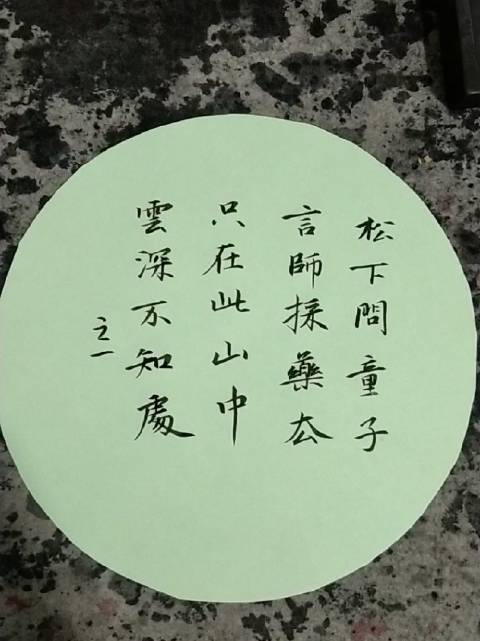 松下問童子
言師採藥去
只在此山中
雲深不知處
之一